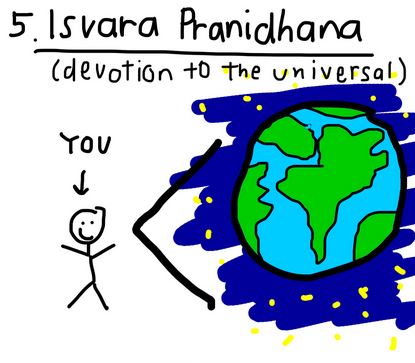 5. Isvara Pranidhana
(devotion to the universal)
YOU